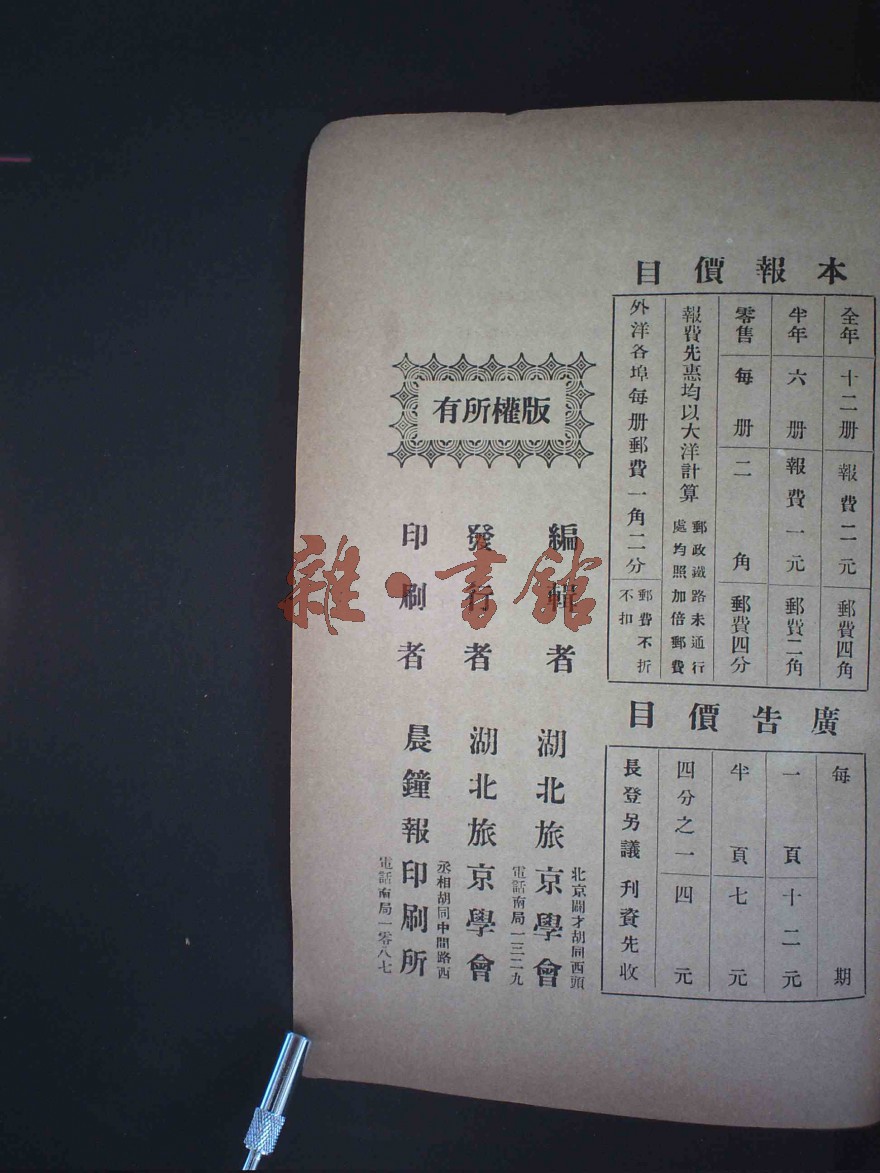 本報價目
全年 十二册 報費二元 郵費四角
半年 六册 報費一元 郵費二角
零售 每册 二角 郵費四分
報費先惠均以大洋計算 郵政鐵路未通行處均照加倍郵費
外洋各埠每册郵費一角二分 郵費不折不扣
廣告價目
每期
一頁 十二元
半頁 七元
四分之一 四元
長登另議 刋資先收
版權所有
編輯者 湖北旅京學會
北京闢才胡同西頭
電話南局一三二九
發行者 湖北旅京學會
印刷者 晨鐘報印刷所
丞相胡同中間路西
電話南局一零八七
雜·書館